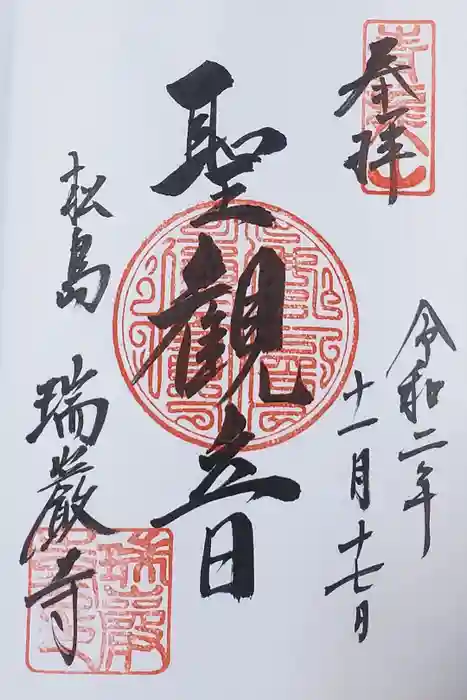 奉拝
令和二年
十一月十七日
聖観音
松島
瑞巌寺